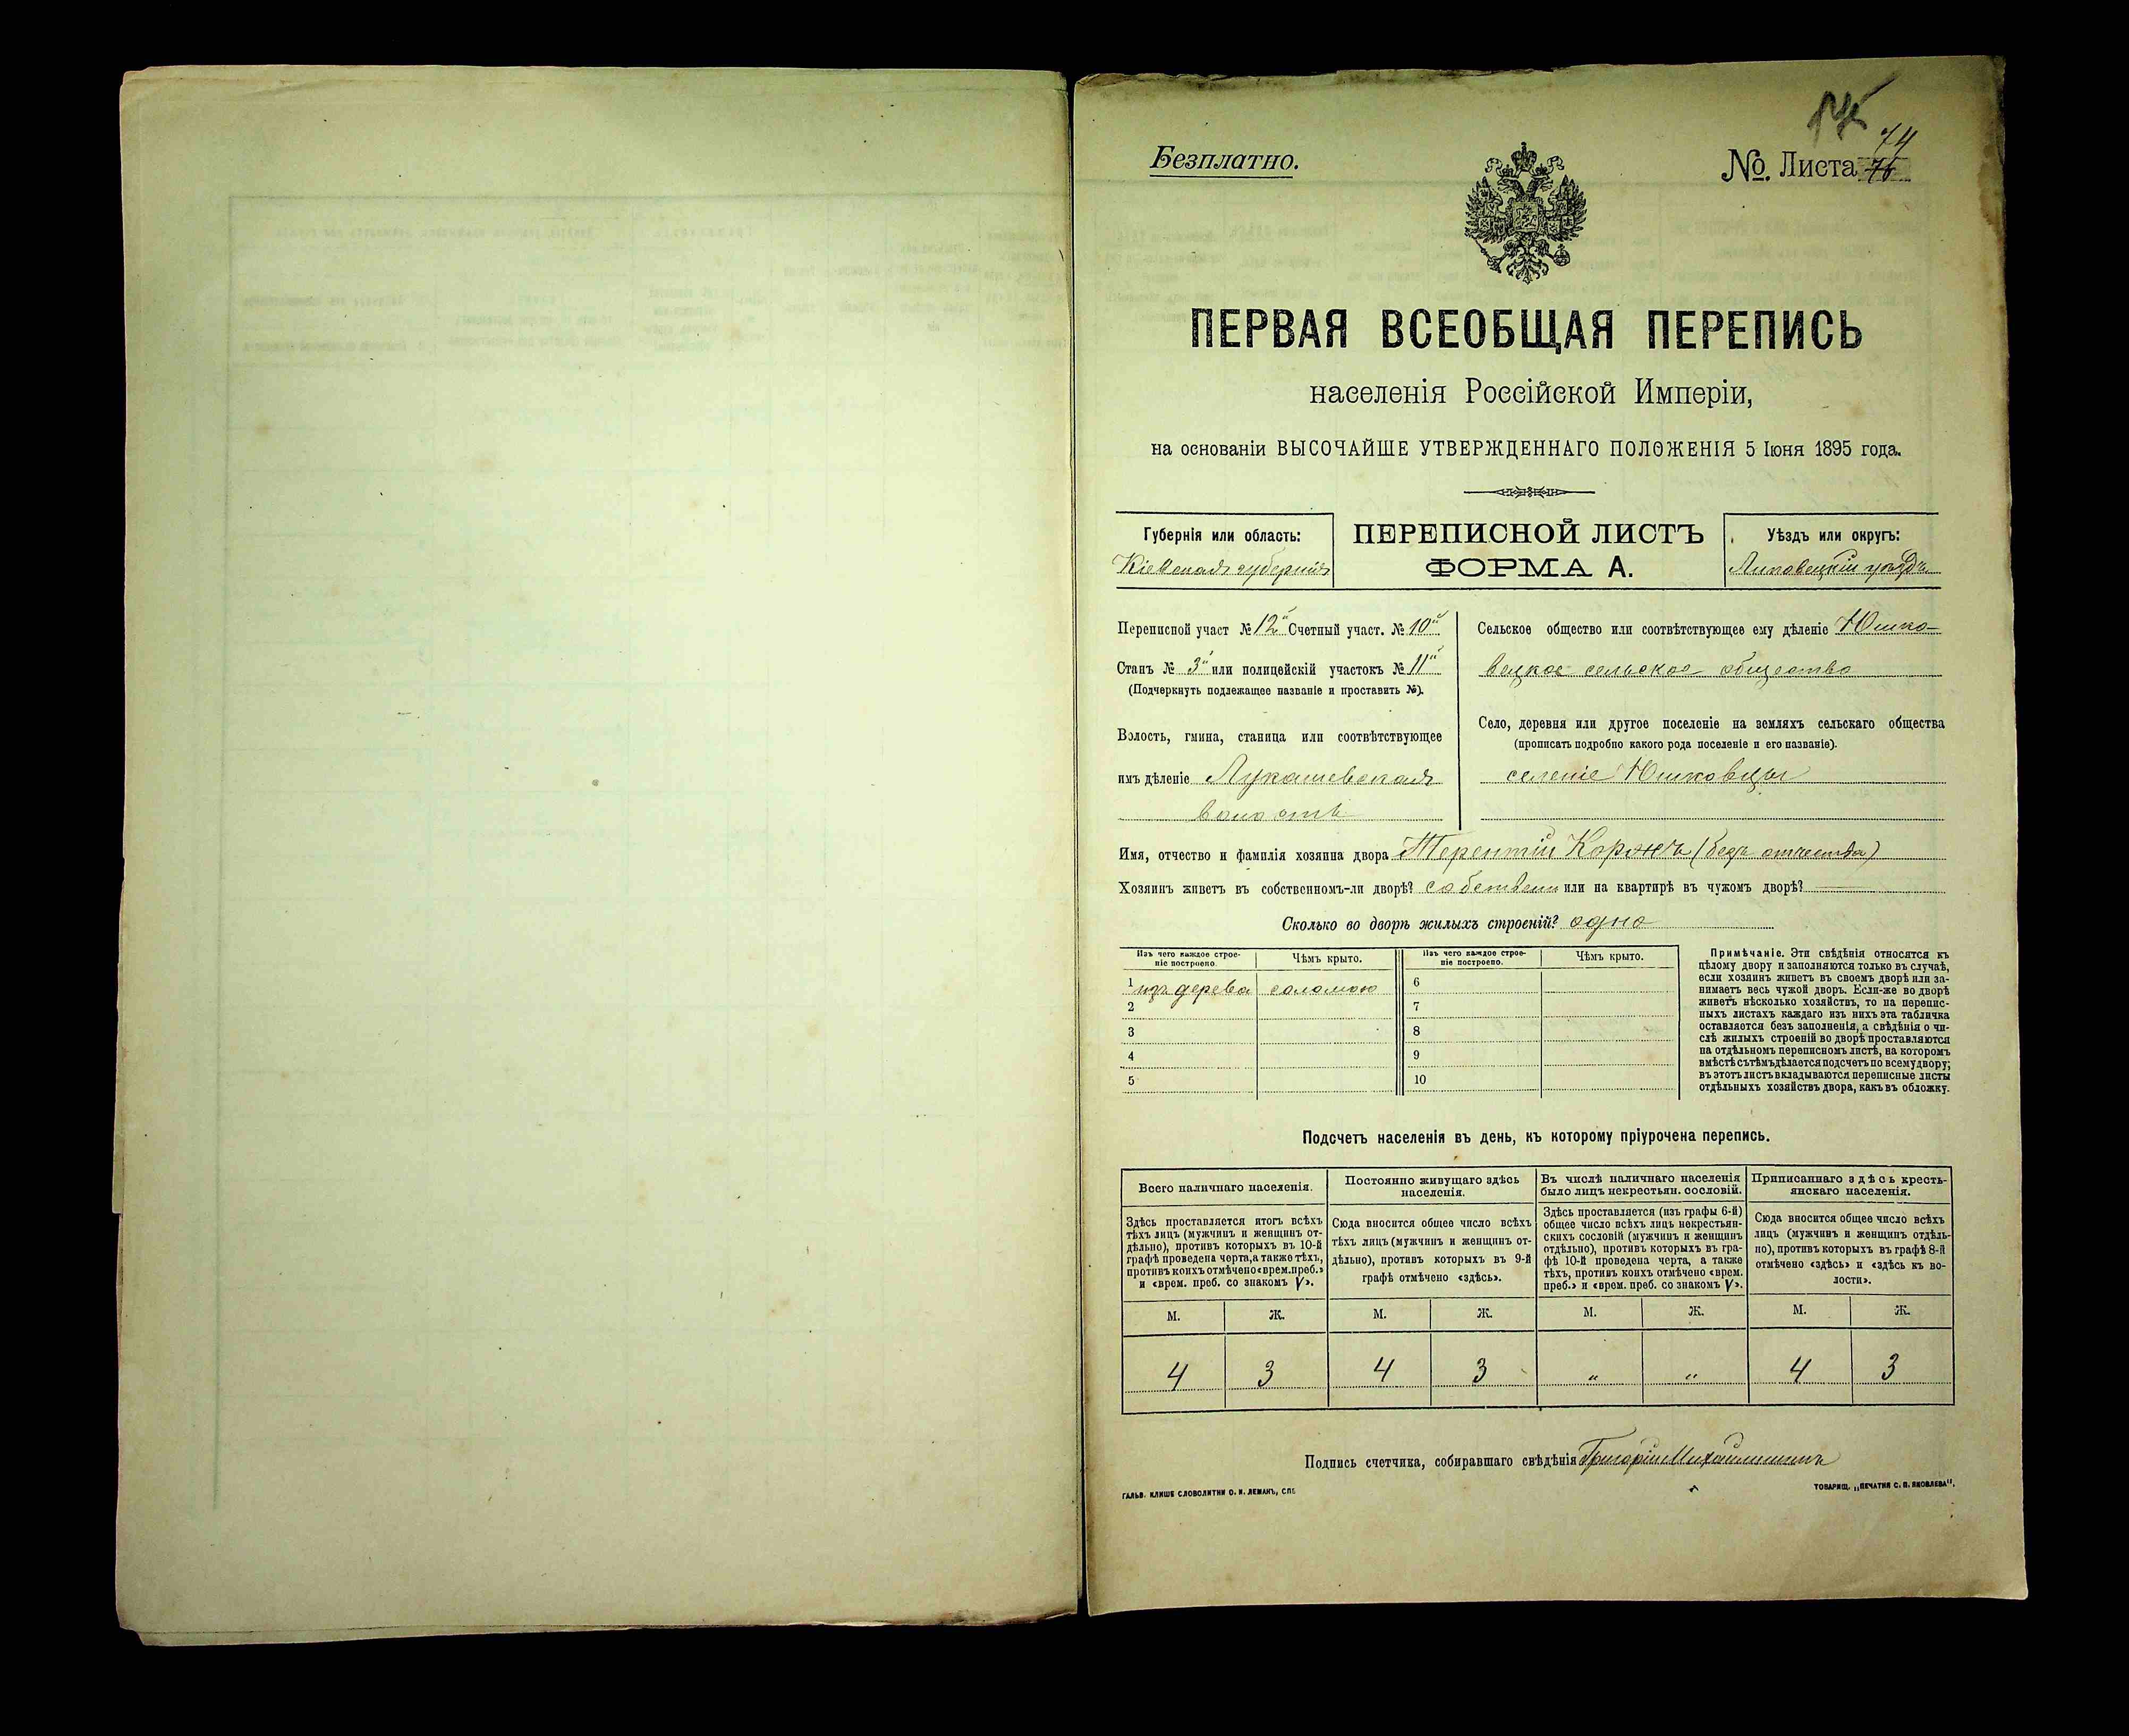 Безплатно.
№. Листа 76 74
ПЕРВАЯ ВСЕОБЩАЯ ПЕРЕПИСЬ
населенія Россійской Имперіи,
на основаніи ВЫСОЧАЙШЕ УТВЕРЖДЕННАГО ПОЛОЖЕНІЯ 5 Іюня 1895 года.
Губернія или область:
Кіевская губернія
ПЕРЕПИСНОЙ ЛИСТЪ
ФОРМА А.
Уѣздъ или округъ:
Липовецкій уѣздъ
Переписной участ № 12й Счетный участ. № 10й
Станъ № 3й или полицейскій участокъ № 11й
(Подчеркнуть подлежащее названіе и проставить №).
Волость, гмина, станица или соотвѣтствующее
имъ дѣленіе Лукашевская
волость
Сельское общество или соотвѣтствующее ему дѣленіе Юшко-
вецкое сельское общество
Село, деревня или другое поселеніе на земляхъ сельскаго общества
(прописать подробно какого рода поселеніе и его названіе).
селеніе Юшковцы
Имя, отчество и фамилія хозяина двора Терентій Коржъ (безъ отчества)
Хозяинъ живетъ въ собственномъ-ли дворѣ? собствени или на квартирѣ въ чужомъ дворѣ? —
Сколько во дворѣ жилыхъ строеній? одно
Изъ чего каждое строе-
ніе построено.
Чѣмъ крыто.
Изъ чего каждое строе-
ніе построено.
Чѣмъ крыто.
1 изъ дерева соломою 6
2 7
3 8
4 9
5 10
Примѣчаніе. Эти свѣдѣнія относятся къ
цѣлому двору и заполняются только въ случаѣ,
если хозяинъ живетъ въ своемъ дворѣ или за-
нимаетъ весь чужой дворъ. Если-же во дворѣ
живетъ нѣсколько хозяйствъ, то на перепис-
ныхъ листахъ каждаго изъ нихъ эта табличка
оставляется безъ заполненія, а свѣдѣнія о чи-
слѣ жилыхъ строеній во дворѣ проставляются
на отдѣльномъ переписномъ листѣ, на которомъ
вмѣстѣ съ тѣмъ дѣлается подсчетъ по всему двору;
въ этотъ листъ вкладываются переписные листы
отдѣльныхъ хозяйствъ двора, какъ въ обложку.
Подсчетъ населенія въ день, къ которому пріурочена перепись.
Всего наличнаго населенія.
Здѣсь проставляется итогъ всѣхъ
тѣхъ лицъ (мужчинъ и женщинъ от-
дѣльно), противъ которыхъ въ 10-й
графѣ проведена черта, а также тѣхъ,
противъ коихъ отмѣчено «врем. преб.»
и «врем. преб. со знакомъ V».
Постоянно живущаго здѣсь
населенія.
Сюда вносится общее число всѣхъ
тѣхъ лицъ (мужчинъ и женщинъ от-
дѣльно), противъ которыхъ въ 9-й
графѣ отмѣчено «здѣсь».
Въ числѣ наличнаго населенія
было лицъ некрестьян. сословій.
Здѣсь проставляется (изъ графы 6-й)
общее число всѣхъ лицъ некрестьян-
скихъ сословій (мужчинъ и женщинъ
отдѣльно), противъ которыхъ въ гра-
фѣ 10-й проведена черта, а также
тѣхъ, противъ коихъ отмѣчено «врем.
преб.» и «врем. преб. со знакомъ V».
Приписаннаго здѣсь кресть-
янскаго населенія.
Сюда вносится общее число всѣхъ
лицъ (мужчинъ и женщинъ отдѣль-
но), противъ которыхъ въ графѣ 8-й
отмѣчено «здѣсь» и «здѣсь къ во-
лости».
М. Ж. М. Ж. М. Ж. М. Ж.
4 3 4 3 " " 4 3
Подпись счетчика, собиравшаго свѣдѣнія Григорій
ГАЛЬВ. КЛИШЕ СЛОВОЛИТНИ О. И. ЛЕМАНЪ, СПБ
ТОВАРИЩ. „ПЕЧАТНЯ С. П. ЯКОВЛЕВА".